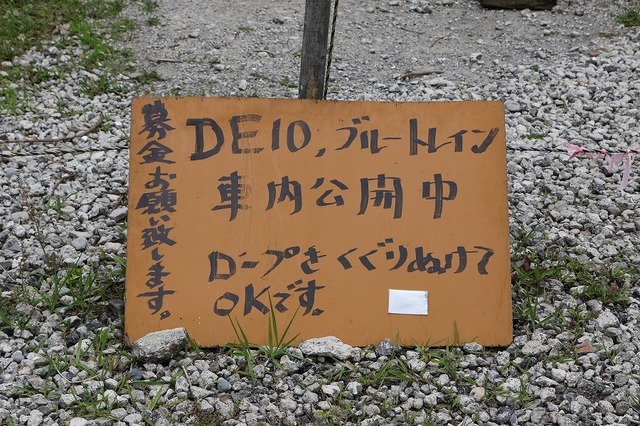 募金お願い致します。
DE10,ブルートレイン
車内公開中
ロープをくぐりぬけて
OKです。